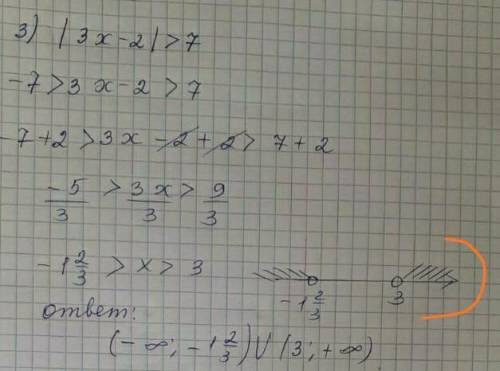 3) |3x-2|>7
-7>3x-2>7
-7+2>3x-2+2>7+2
-5/3 > 3x/3 > 9/3
-1 2/3 > x > 3
-1 2/3 3
ответ:
(-∞; -1 2/3) U (3; +∞)